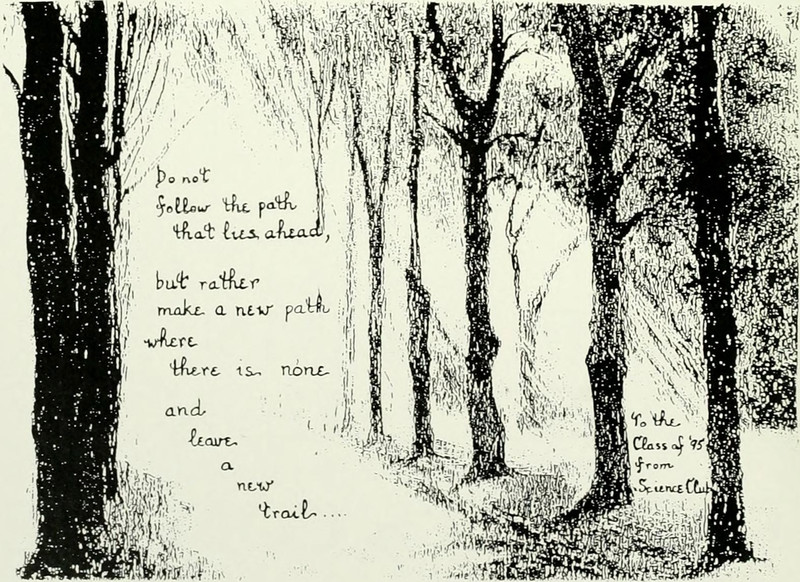 Do not
follow the path
that lies ahead,
but rather
make a new path
where
there is none
and
leave
a
new
trail....
To the
Class of '95
from
Science Club